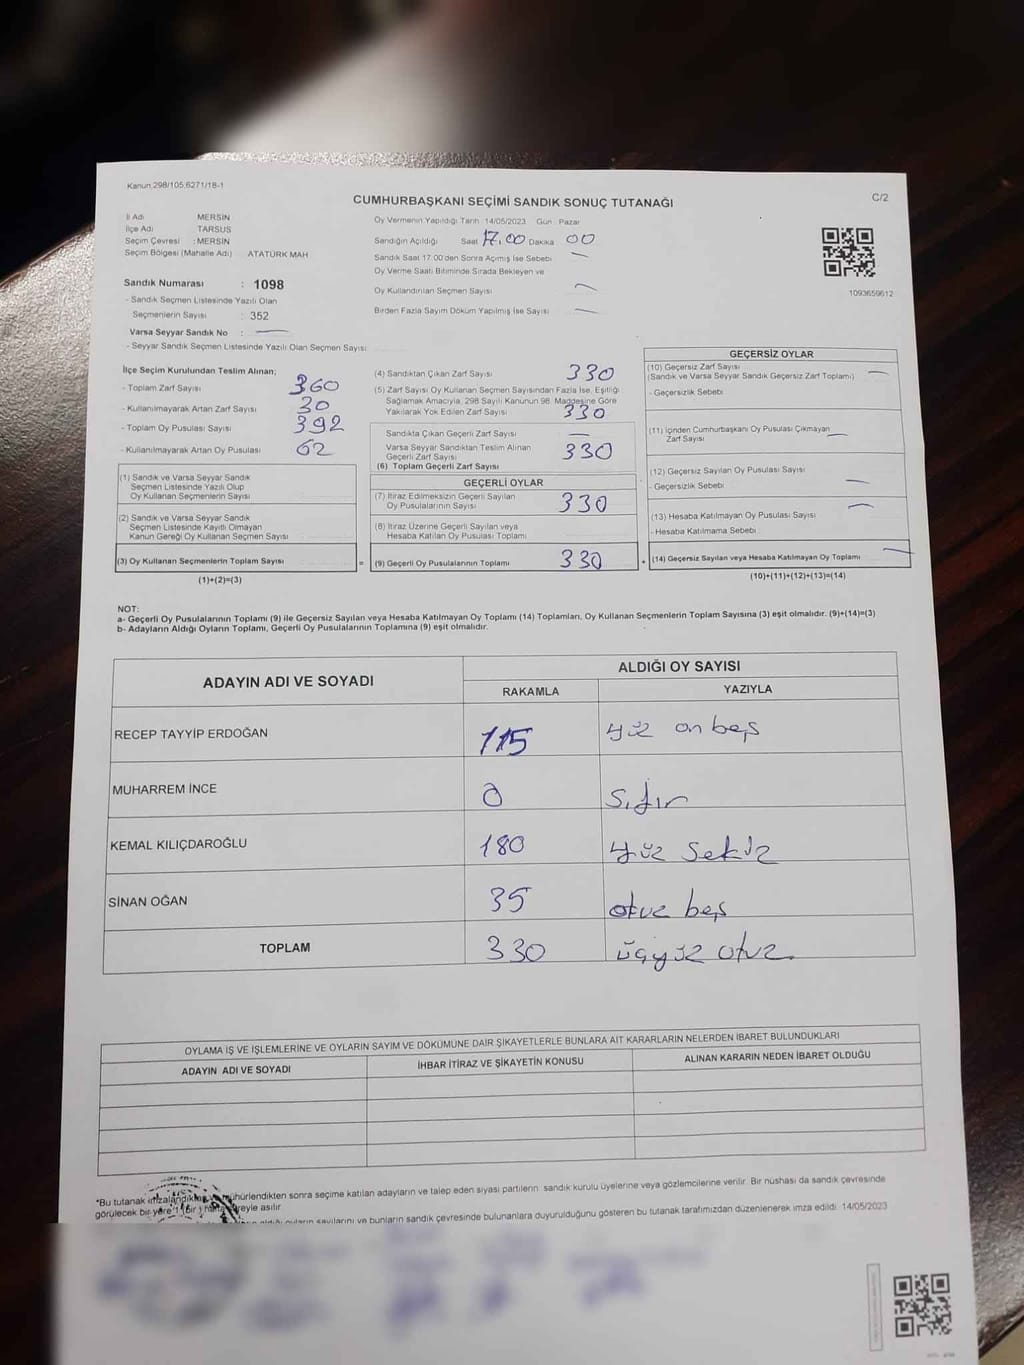 Kanun 298/105;6271/18-1
C/2
CUMHURBAŞKANI SEÇİMİ SANDIK SONUÇ TUTANAĞI
İl Adı MERSIN
İlçe Adı TARSUS
Seçim Çevresi : MERSIN
Seçim Bölgesi (Mahalle Adı) ATATÜRK MAH
Sandık Numarası : 1098
- Sandık Seçmen Listesinde Yazılı Olan
Seçmenlerin Sayısı : 352
Varsa Seyyar Sandık No :
- Seyyar Sandık Seçmen Listesinde Yazılı Olan Seçmen Sayısı:
Oy Vermenin Yapıldığı Tarih :14/05/2023 Gün : Pazar
Sandığın Açıldığı Saat 17.00 Dakika 00
Sandık Saat 17.00'den Sonra Açımış İse Sebebi
Oy Verme Saati Bitiminde Sırada Bekleyen ve
Oy Kullandırılan Seçmen Sayısı
Birden Fazla Sayım Döküm Yapılmış İse Sayısı
1093659612
İlçe Seçim Kurulundan Teslim Alınan;
- Toplam Zarf Sayısı 360
- Kullanılmayarak Artan Zarf Sayısı 30
- Toplam Oy Pusulası Sayısı 392
- Kullanılmayarak Artan Oy Pusulası 62
(1) Sandık ve Varsa Seyyar Sandık
Seçmen Listesinde Yazılı Olup
Oy Kullanan Seçmenlerin Sayısı
(2) Sandık ve Varsa Seyyar Sandık
Seçmen Listesinde Kayıtlı Olmayan
Kanun Gereği Oy Kullanan Seçmen Sayısı
(3) Oy Kullanan Seçmenlerin Toplam Sayısı
(1)+(2)=(3)
(4) Sandıktan Çıkan Zarf Sayısı 330
(5) Zarf Sayısı Oy Kullanan Seçmen Sayısından Fazla İse, Eşitliği
Sağlamak Amacıyla, 298 Sayılı Kanunun 98. Maddesine Göre
Yakılarak Yok Edilen Zarf Sayısı 330
Sandıkta Çıkan Geçerli Zarf Sayısı
Varsa Seyyar Sandıktan Teslim Alınan
Geçerli Zarf Sayısı 330
(6) Toplam Geçerli Zarf Sayısı
GEÇERLİ OYLAR
(7) İtiraz Edilmeksizin Geçerli Sayılan
Oy Pusulalarının Sayısı 330
(8) İtiraz Üzerine Geçerli Sayılan veya
Hesaba Katılan Oy Pusulası Toplamı
= (9) Geçerli Oy Pusulalarının Toplamı 330
GEÇERSİZ OYLAR
(10) Geçersiz Zarf Sayısı
(Sandık ve Varsa Seyyar Sandık Geçersiz Zarf Toplamı)
- Geçersizlik Sebebi
(11) İçinden Cumhurbaşkanı Oy Pusulası Çıkmayan
Zarf Sayısı
(12) Geçersiz Sayılan Oy Pusulası Sayısı
- Geçersizlik Sebebi
(13) Hesaba Katılmayan Oy Pusulası Sayısı
- Hesaba Katılmama Sebebi
+ (14) Geçersiz Sayılan veya Hesaba Katılmayan Oy Toplamı
(10)+(11)+(12)+(13)=(14)
NOT:
a- Geçerli Oy Pusulalarının Toplamı (9) ile Geçersiz Sayılan veya Hesaba Katılmayan Oy Toplamı (14) Toplamları, Oy Kullanan Seçmenlerin Toplam Sayısına (3) eşit olmalıdır. (9)+(14)=(3)
b- Adayların Aldığı Oyların Toplamı, Geçerli Oy Pusulalarının Toplamına (9) eşit olmalıdır.
ADAYIN ADI VE SOYADI
ALDIĞI OY SAYISI
RAKAMLA YAZIYLA
RECEP TAYYİP ERDOĞAN 115 yüz on beş
MUHARREM İNCE 0 sıfır
KEMAL KILIÇDAROĞLU 180 yüz sekiz
SİNAN OĞAN 35 otuz beş
TOPLAM 330 üçyüz otuz.
OYLAMA İŞ VE İŞLEMLERİNE VE OYLARIN SAYIM VE DÖKÜMÜNE DAİR ŞİKAYETLERLE BUNLARA AİT KARARLARIN NELERDEN İBARET BULUNDUKLARI
ADAYIN ADI VE SOYADI İHBAR İTİRAZ VE ŞİKAYETİN KONUSU ALINAN KARARIN NEDEN İBARET OLDUĞU
*Bu tutanak imzalandıktan ve mühürlendikten sonra seçime katılan adayların ve talep eden siyasi partilerin sandık kurulu üyelerine veya gözlemcilerine verilir. Bir nüshası da sandık çevresinde
görülecek bir yere 1 (Bir) hafta süreyle asılır
oyların sayılarını ve bunların sandık çevresinde bulunanlara duyurulduğunu gösteren bu tutanak tarafımızdan düzenlenerek imza edildi. 14/05/2023